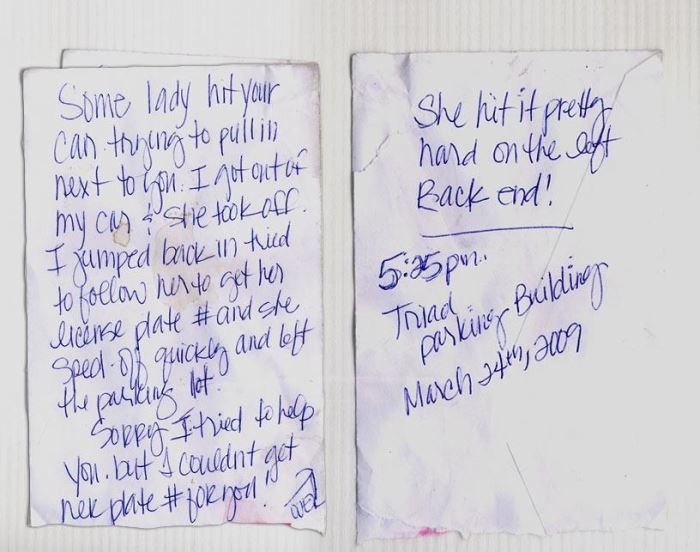 Some lady hit your
car trying to pull in
next to you. I got out of
my car & she took off.
I jumped back in tried
to follow her to get her
license plate # and she
sped off quickly and left
the parking lot.
Sorry I tried to help
you. but I couldnt get
her plate # for you!
OVER
She hit it pretty
hard on the left
Back end!
5:25pm.
Triad
parking Building
March 24th, 2009